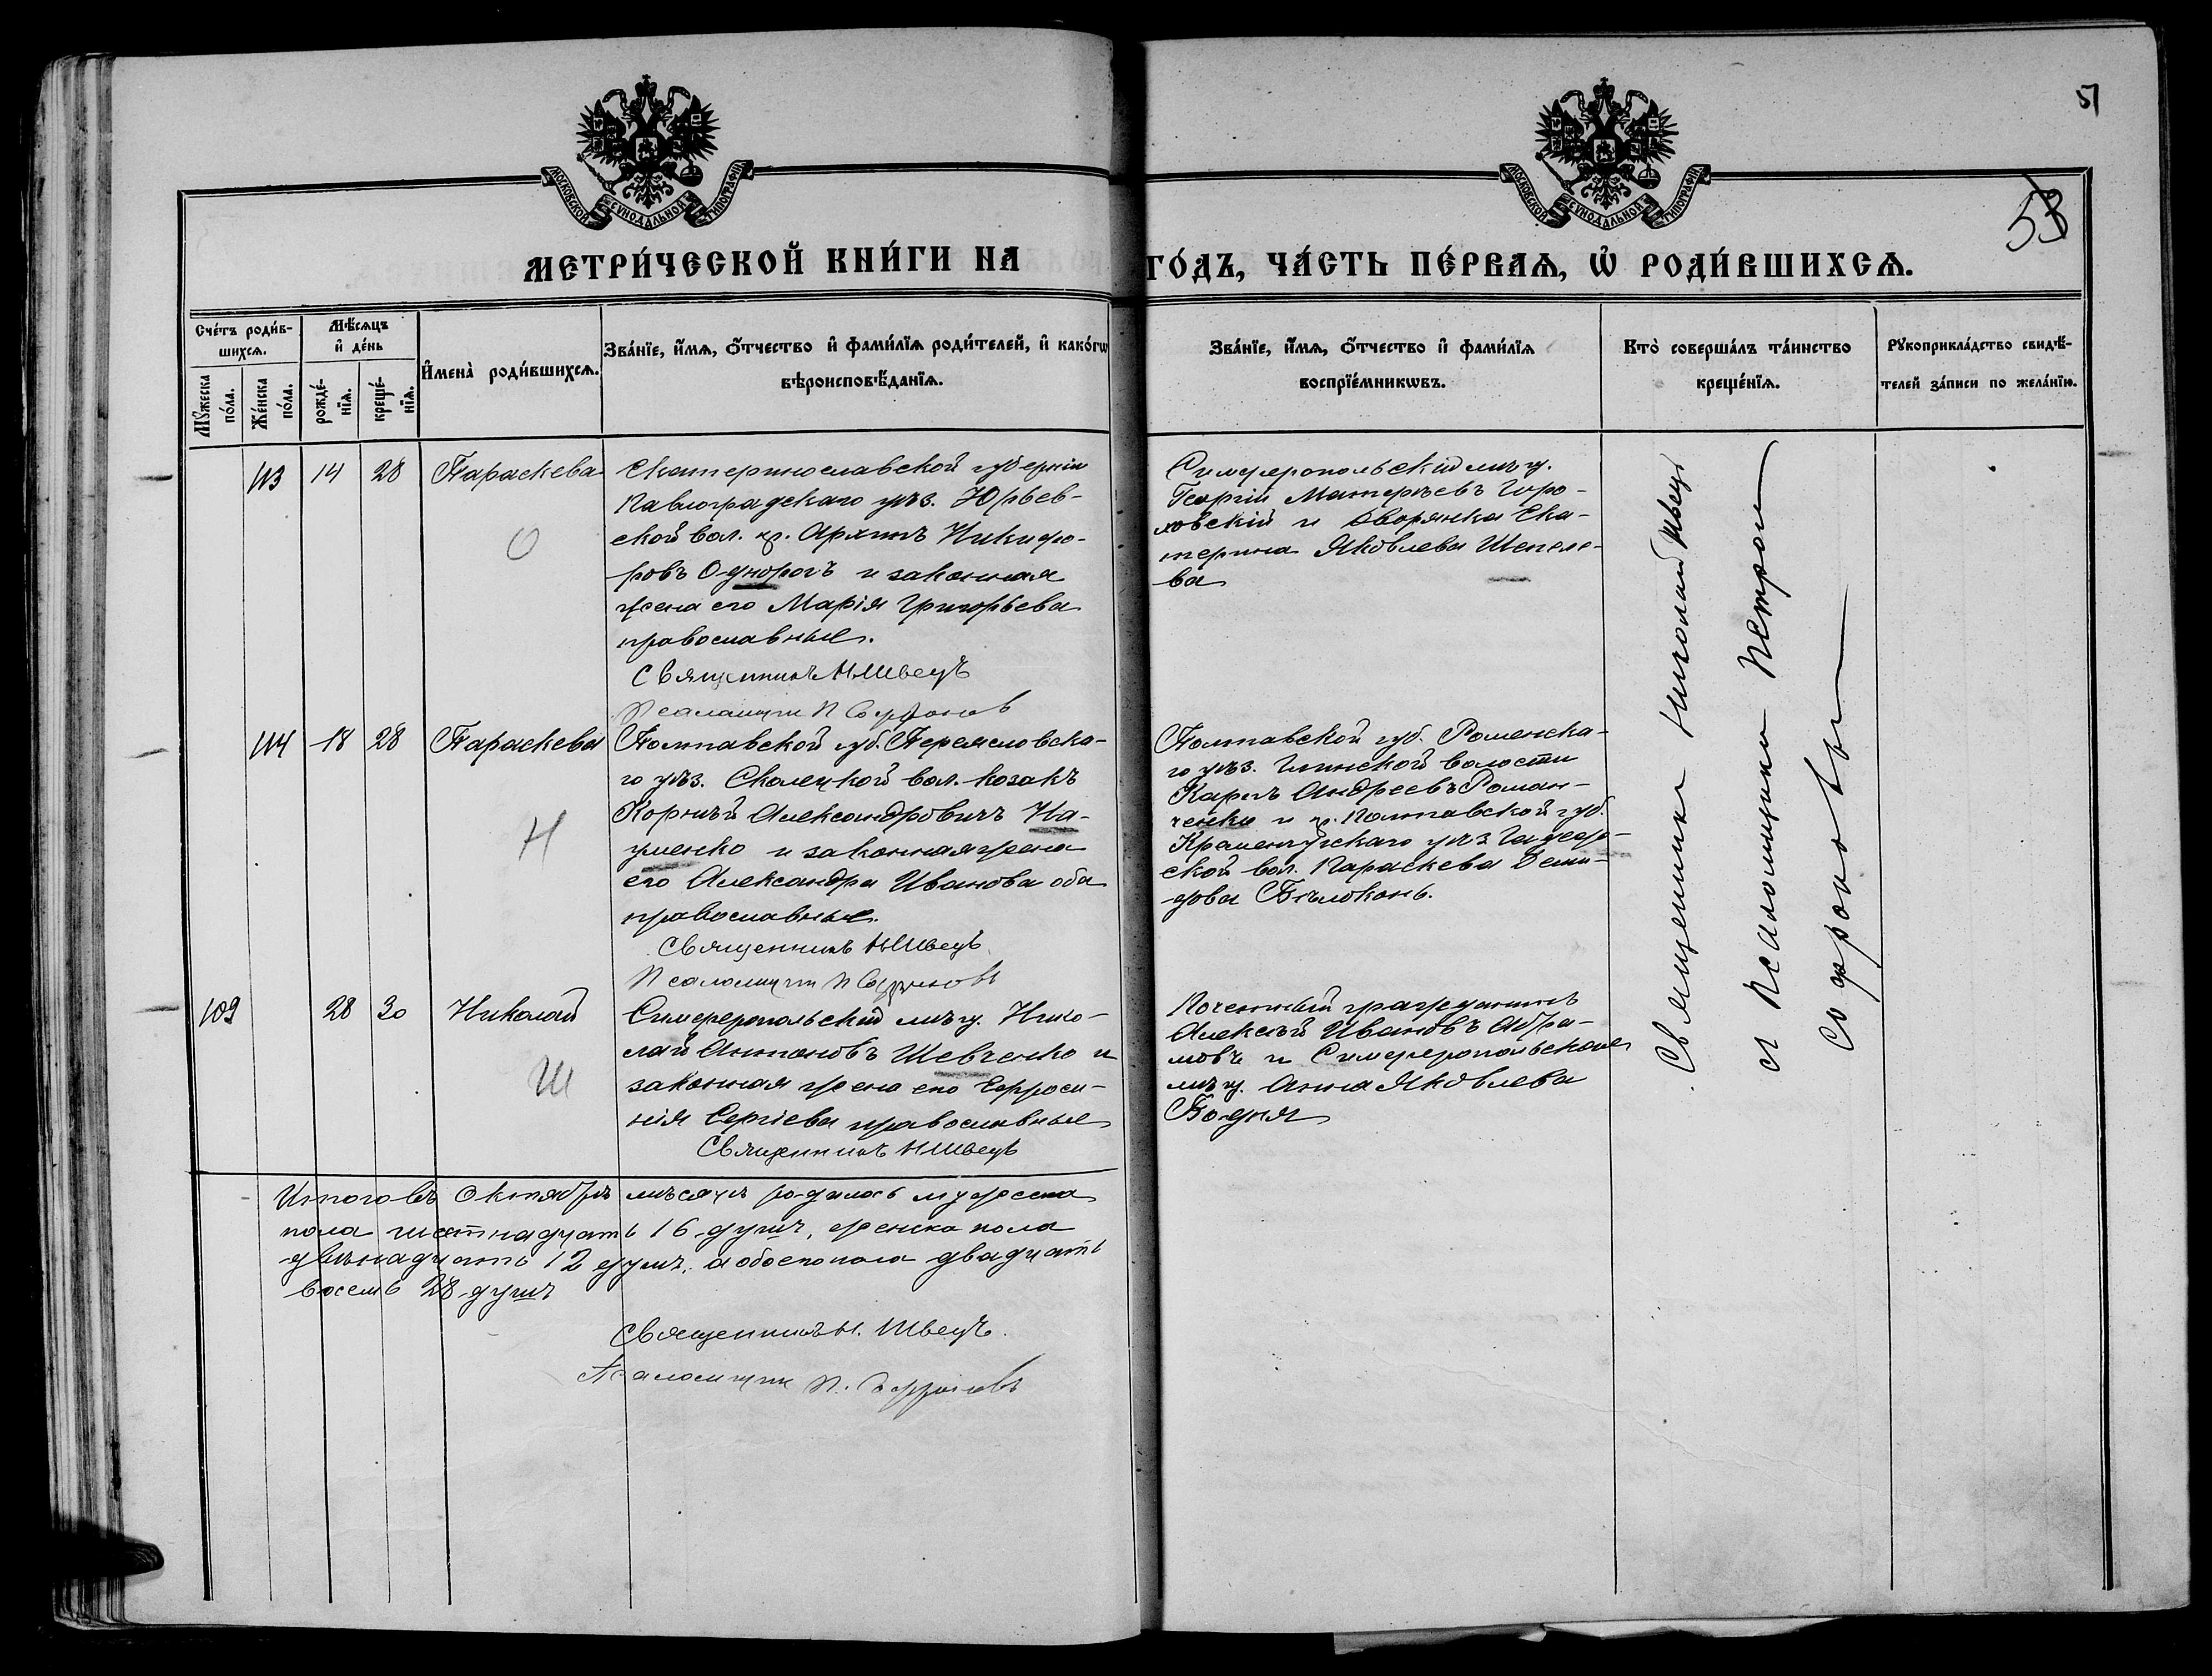 51
53
МОСКОВСКОЙ СѴНОДАЛЬНОЙ ТИПОГРАФІИ
МОСКОВСКОЙ СѴНОДАЛЬНОЙ ТИПОГРАФІИ
МЕТРИ́ЧЕСКОЙ КНИ́ГИ НА
ГО́ДЪ, ЧА́СТЬ ПЕ́РВАѦ, Ѽ РОДИ́ВШИХСѦ.
Сче́тъ роди́в-
шихсѧ.
Мѣ́сѧцъ
и҆ де́нь
Мꙋ́жеска
по́ла.
Же́нска
по́ла.
рожде́-
нїѧ.
креще́-
нїѧ.
И҆мена̀ роди́вшихсѧ.
Зва́нїе, и҆́мѧ, ѻ҆́тчество и҆ фами́лїѧ роди́телей, и҆ како́гѡ
вѣроисповѣ́данїѧ.
Зва́нїе, и҆́мѧ, ѻ҆́тчество и҆ фами́лїѧ
воспрїе́мникѡвъ.
Кто̀ соверша́лъ та́инство
креще́нїѧ.
Рꙋкоприкла́дство свидѣ́-
телей за́писи по жела́нїю.
113 14 28 Параскева
О
Екатеринославской губерніи
Павлоградскаго уѣз. Юрьев-
ской вол. кр. Архипъ Никифо-
ровъ Однорогъ и законная
жена его Марія Григорьева
православные.
Священникъ Н Швецъ
Псаломщик П Софронов
Симферопольскій мѣщ.
Георгій Матѳеевъ Горо-
ховскій и дворянка Ека-
терина Яковлева Шепеле-
ва
114 18 28 Параскева
Н
Полтавской губ. Переясловска-
го уѣз. Скалецкой вол. козакъ
Корнѣй Александровичъ На-
уменко и законная жена
его Александра Иванова оба
православные.
Священникъ Н Швецъ
Псаломщик П Софроновъ
Полтавской губ. Роменска-
го уѣз. Глинской волости
Карпъ Андреевъ Роман-
ченко и кр. Полтавской губ.
Кременчугскаго уѣз
ской вол. Параскева Деми-
дова Бѣлоконь.
109 28 30 Николай
Ш
Симферопольскій мѣщ. Нико-
лай Антоновъ Шевченко и
законная жена его Ефроси-
нія Сергіева православные
Священникъ Н Швецъ
Почетный гражданинъ
Алексѣй Ивановъ Абра-
мовъ и Симферопольская
мѣщ. Анна Яковлева
Бодня
Священникъ Николай Швецъ
и Псаломщикъ Петръ
Софроновъ
Итого въ Октябрѣ мѣсяцѣ родилось мужеска
пола шестнадцать 16 душъ, женска пола
двѣнадцать 12 душъ, а обоего пола двадцать
восемь 28 душъ
Священникъ Н. Швецъ.
Псаломщик П. Софроновъ